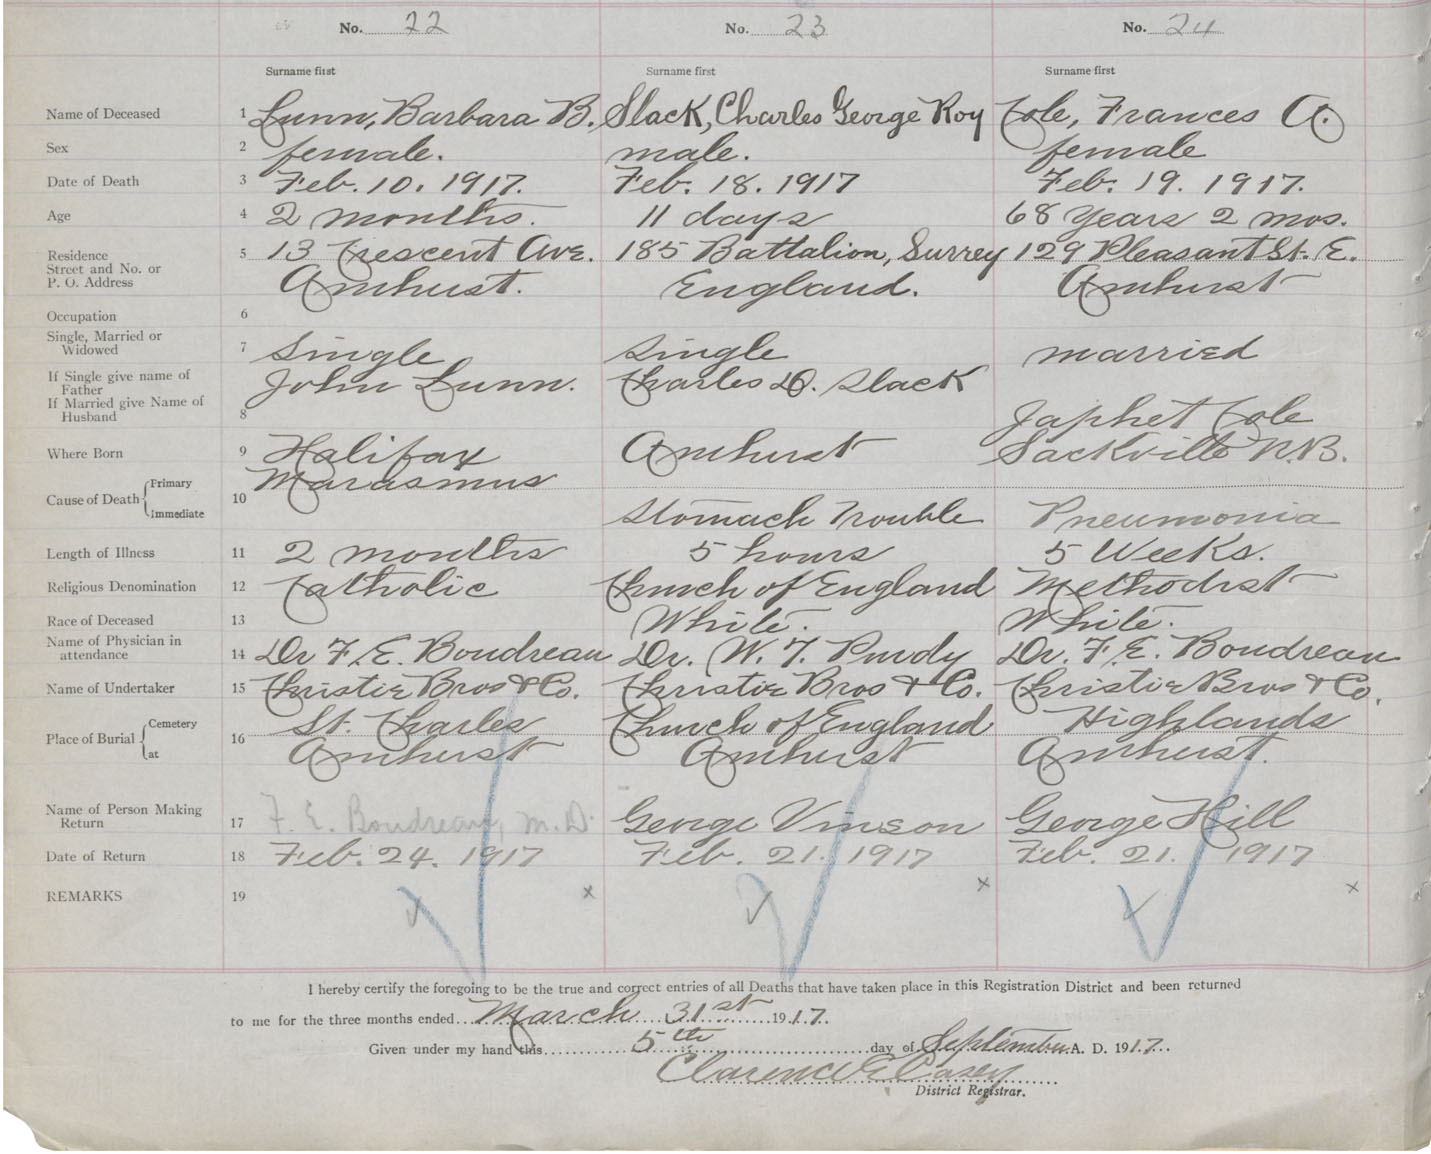 No. 22 No. 23 No. 24
Surname first Surname first Surname first
Name of Deceased 1 Lunn, Barbara B. Slack, Charles George Roy Cole, Frances A.
Sex 2 female. male. female
Date of Death 3 Feb. 10. 1917. Feb. 18. 1917 Feb. 19. 1917.
Age 4 2 months. 11 days 68 Years 2 mos.
Residence 5 13 Crescent Ave. 185 Battalion, Surrey 129 Pleasant St. E.
Street and No. or
P. O. Address Amhurst. England. Amhurst
Occupation 6
Single, Married or
Widowed 7 Single Single married
If Single give name of
Father John Lunn. Charles D. Slack
If Married give Name of
Husband 8 Japhet Cole
Where Born 9 Halifax Amhurst Sackville N.B.
Cause of Death Primary Marasmus
10
Immediate Stomach Trouble Pneumonia
Length of Illness 11 2 months 5 hours 5 Weeks.
Religious Denomination 12 Catholic Church of England Methodist
Race of Deceased 13 White. White.
Name of Physician in
attendance 14 Dr F. E. Boudreau Dr. W. T. Purdy Dr. F. E. Boudreau
Name of Undertaker 15 Christie Bros & Co. Christie Bros & Co. Christie Bros & Co.
Place of Burial Cemetery St. Charles Church of England Highlands
16
at Amhurst Amhurst Amhurst.
Name of Person Making
Return 17 F. E. Boudreau, M.D. George Vinson George Hill
Date of Return 18 Feb. 24. 1917 Feb. 21. 1917 Feb. 21. 1917
REMARKS 19
I hereby certify the foregoing to be the true and correct entries of all Deaths that have taken place in this Registration District and been returned
to me for the three months ended March 31st 1917.
Given under my hand this 5th day of September A. D. 1917
Clarence E Casey
District Registrar.